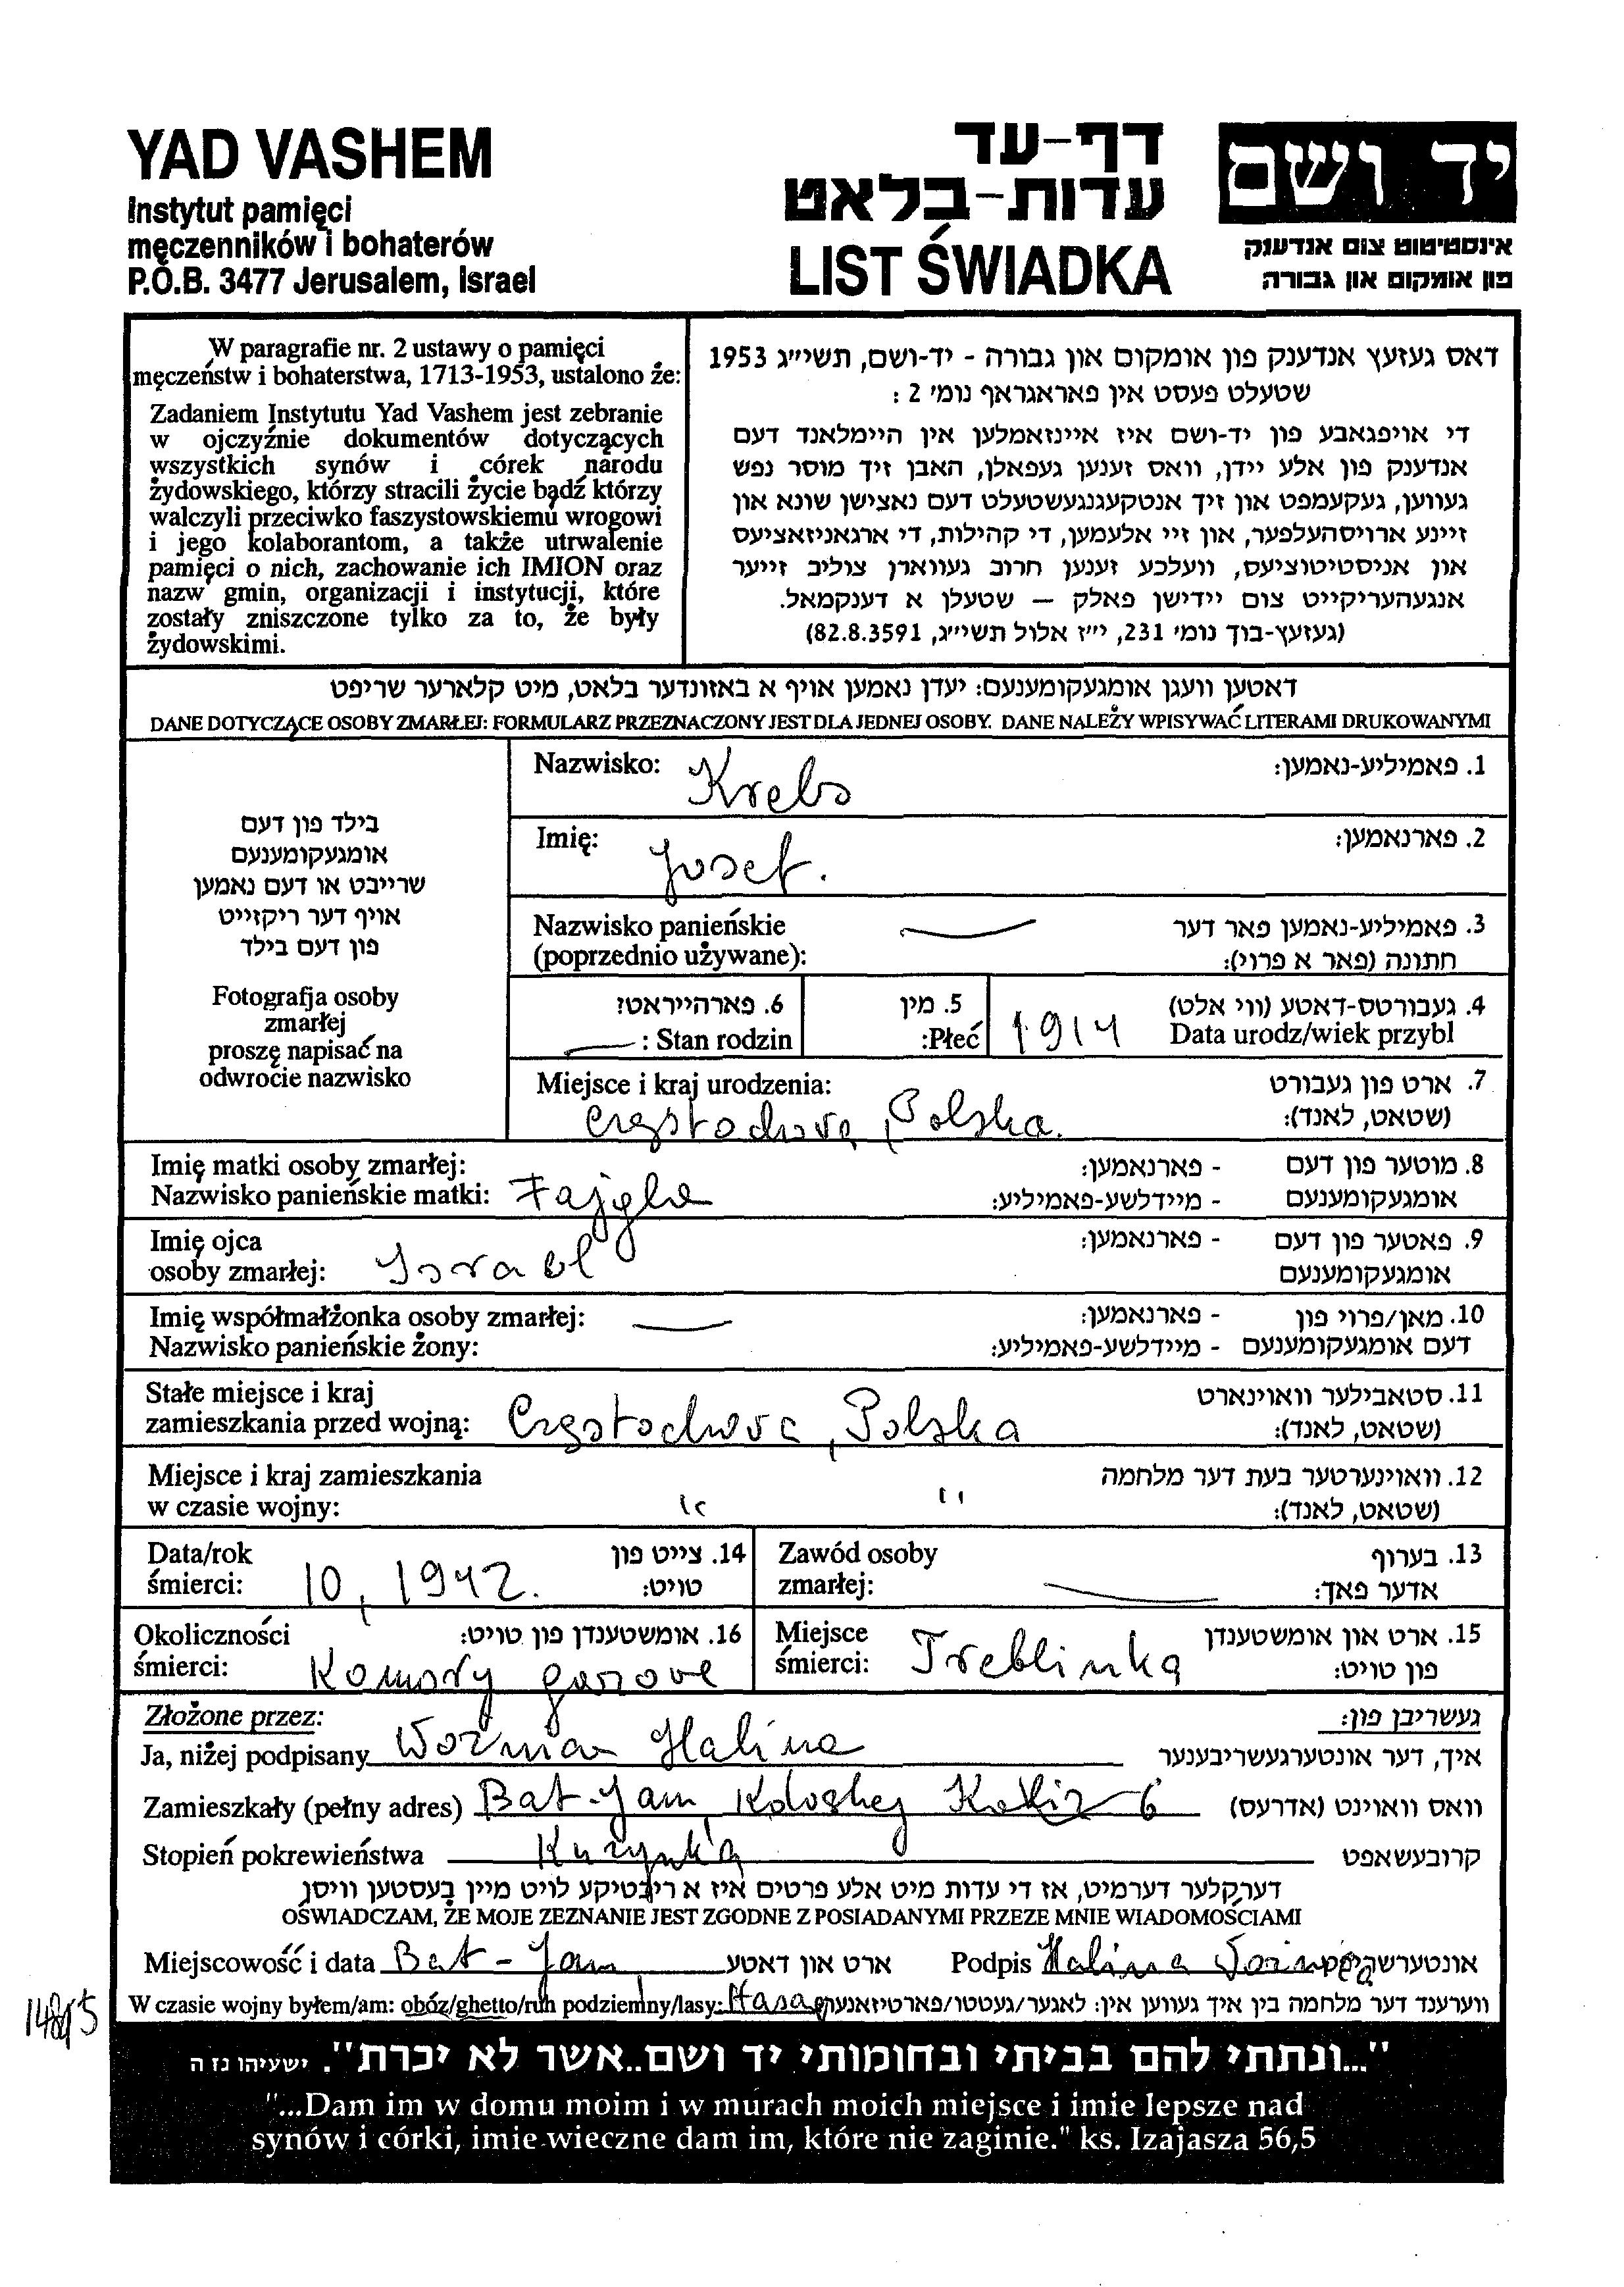 YAD VASHEM
Instytut pamięci
męczenników i bohaterów
P.O.B. 3477 Jerusalem, Israel
דף-עד
עדות-בלאט
LIST ŚWIADKA
יד ושם
אינסטיטוט צום אנדענק
פון אומקום און גבורה
W paragrafie nr. 2 ustawy o pamięci
męczeństw i bohaterstwa, 1713-1953, ustalono że:
Zadaniem Instytutu Yad Vashem jest zebranie
w ojczyźnie dokumentów dotyczących
wszystkich synów i córek narodu
żydowskiego, którzy stracili życie bądź którzy
walczyli przeciwko faszystowskiemu wrogowi
i jego kolaborantom, a także utrwalenie
pamięci o nich, zachowanie ich IMION oraz
nazw gmin, organizacji i instytucji, które
zostały zniszczone tylko za to, że były
żydowskimi.
דאס געזעץ אנדענק פון אומקום און גבורה - יד-ושם, תשי״ג 1953
שטעלט פעסט אין פאראגראף נומ׳ 2 :
די אויפגאבע פון יד-ושם איז איינזאמלען אין היימלאנד דעם
אנדענק פון אלע יידן, וואס זענען געפאלן, האבן זיך מוסר נפש
געווען, געקעמפט און זיך אנטקעגנגעשטעלט דעם נאצישן שונא און
זיינע ארויסהעלפער, און זיי אלעמען, די קהילות, די ארגאניזאציעס
און אניסטיטוציעס, וועלכע זענען חרוב געווארן צוליב זייער
אנגעהעריקייט צום יידישן פאלק – שטעלן א דענקמאל.
(געזעץ-בוך נומ׳ 231, י״ז אלול תשי״ג, 82.8.3591)
דאטען וועגן אומגעקומענעם: יעדן נאמען אויף א באזונדער בלאט, מיט קלארער שריפט
DANE DOTYCZĄCE OSOBY ZMARŁEJ: FORMULARZ PRZEZNACZONY JEST DLA JEDNEJ OSOBY. DANE NALEŻY WPISYWAĆ LITERAMI DRUKOWANYMI
בילד פון דעם
אומגעקומענעם
שרייבט או דעם נאמען
אויף דער ריקזייט
פון דעם בילד
Fotografja osoby
zmarłej
proszę napisać na
odwrocie nazwisko
Nazwisko: Krebs 1. פאמיליע-נאמען:
Imię: Josef. 2. פארנאמען:
Nazwisko panieńskie — 3. פאמיליע-נאמען פאר דער
(poprzednio używane): חתונה (פאר א פרוי):
6. פארהייראט? 5. מין 4. געבורטס-דאטע (ווי אלט)
— : Stan rodzin :Płeć 1914 Data urodz/wiek przybl
Miejsce i kraj urodzenia: 7. ארט פון געבורט
Częstochowa, Polska. (שטאט, לאנד):
Imię matki osoby zmarłej: - פארנאמען: 8. מוטער פון דעם
Nazwisko panieńskie matki: Fajgla - מיידלשע-פאמיליע: אומגעקומענעם
Imię ojca - פארנאמען: 9. פאטער פון דעם
osoby zmarłej: Israel אומגעקומענעם
Imię współmałżonka osoby zmarłej: — - פארנאמען: 10. מאן/פרוי פון
Nazwisko panieńskie żony: - מיידלשע-פאמיליע: דעם אומגעקומענעם
Stałe miejsce i kraj 11. סטאבילער וואוינארט
zamieszkania przed wojną: Częstochowa, Polska (שטאט, לאנד):
Miejsce i kraj zamieszkania 12. וואוינערטער בעת דער מלחמה
w czasie wojny: " " (שטאט, לאנד):
Data/rok 14. צייט פון Zawód osoby 13. בערוף
śmierci: 10, 1942. טויט: zmarłej: — אדער פאך:
Okoliczności 16. אומשטענדן פון טויט: Miejsce 15. ארט און אומשטענדן
śmierci: Komory gazowe śmierci: Treblinka פון טויט:
Złożone przez: געשריבן פון:
Ja, niżej podpisany Halina איך, דער אונטערגעשריבענער
Zamieszkały (pełny adres) Bat-Jam 6 וואס וואוינט (אדרעס)
Stopień pokrewieństwa Kuzynka קרובעשאפט
דערקלער דערמיט, אז די עדות מיט אלע פרטים איז א ריכטיקע לויט מיין בעסטען וויסן
OŚWIADCZAM, ŻE MOJE ZEZNANIE JEST ZGODNE Z POSIADANYMI PRZEZE MNIE WIADOMOŚCIAMI
Miejscowość i data Bat-Jam ארט און דאטע Podpis Halina אונטערשריפט
W czasie wojny byłem/am: obóz/ghetto/ruh podziemny/lasy: Hasag ווערענד דער מלחמה בין איך געווען אין: לאגער/געטטו/פארטיזאנער
"...ונתתי להם בביתי ובחומותי יד ושם..אשר לא יכרת". ישעיהו נז ה
"...Dam im w domu moim i w murach moich miejsce i imie lepsze nad
synów i córki, imie wieczne dam im, które nie zaginie." ks. Izajasza 56,5